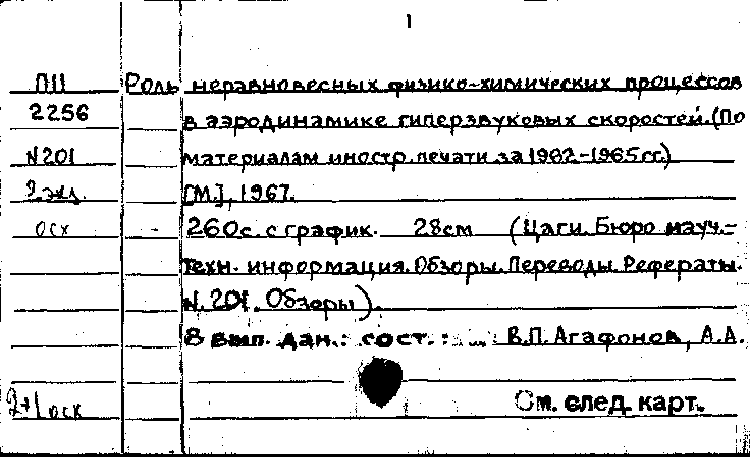 1
ПII Роль неравновесных физико-химических процессов
2256 в аэродинамике гиперзвуковых скоростей. (По
N201 материалам иностр. печати за 1962-1965гг.)
2 экз. [М.], 1967.
осх 260с. с график. 28см (Цаги. Бюро науч.-
техн. информация. Обзоры. Переводы. Рефераты.
N. 201. Обзоры).
В вып. дан.: сост.: В.П. Агафонов, А.А.
2+1 осх См. след. карт.